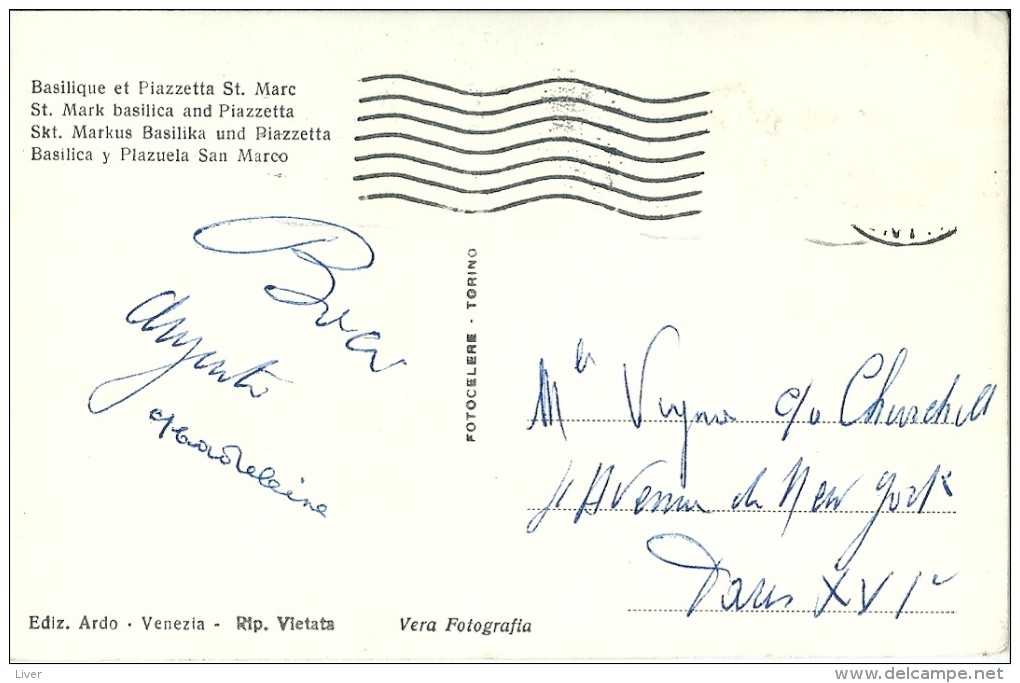 Basilique et Piazzetta St. Marc
St. Mark basilica and Piazzetta
Skt. Markus Basilika und Piazzetta
Basilica y Plazuela San Marco
FOTOCELERE - TORINO
Mle c/o Churchill
Avenue de New York
Paris XVIe
Ediz. Ardo - Venezia - Rip. Vietata
Vera Fotografia
Liver
www.delcampe.net